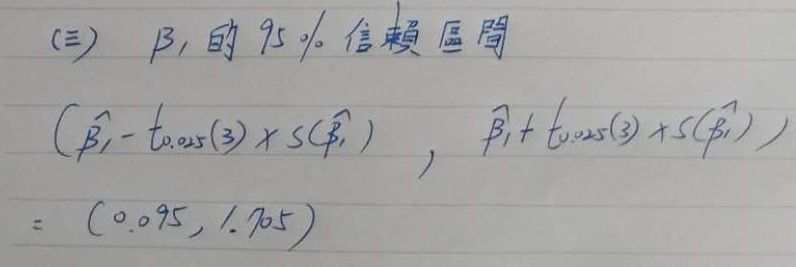 (三) β₁ 的 95% 信賴區間
(β̂₁ - t₀.₀₂₅(3) × S(β̂₁) , β̂₁ + t₀.₀₂₅(3) × S(β̂₁))
= (0.095, 1.705)